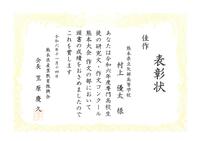 表彰状
佳作
熊本県立矢部高等学校
村上 優太 様
あなたは令和六年度専門高校生
徒の研究文・作文コンクール
熊本大会 作文の部において
頭書の成績をおさめましたので
これを賞します
令和六年十一月十四日
熊本県産業教育振興会
会長 笠原 慶久